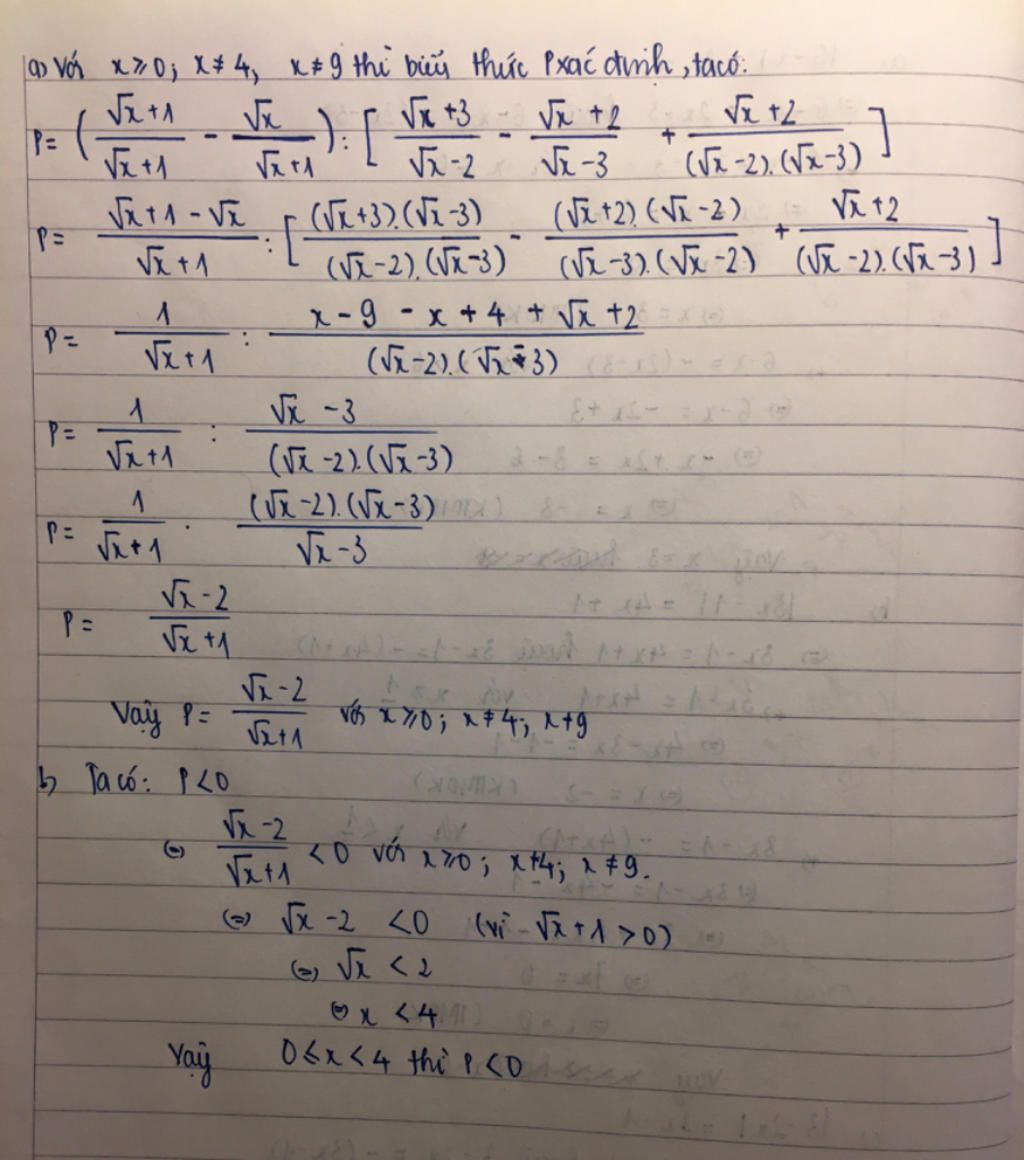 a) Với x ≥ 0; x ≠ 4, x ≠ 9 thì biểu thức P xác định, ta có:
P = ( (√x + 1)/(√x + 1) - √x/(√x + 1) ) : [ (√x + 3)/(√x - 2) - (√x + 2)/(√x - 3) + (√x + 2)/((√x - 2).(√x - 3)) ]
P = (√x + 1 - √x)/(√x + 1) : [ ((√x + 3).(√x - 3))/((√x - 2).(√x - 3)) - ((√x + 2).(√x - 2))/((√x - 3).(√x - 2)) + (√x + 2)/((√x - 2).(√x - 3)) ]
P = 1/(√x + 1) : (x - 9 - x + 4 + √x + 2)/((√x - 2).(√x - 3))
P = 1/(√x + 1) : (√x - 3)/((√x - 2).(√x - 3))
P = 1/(√x + 1) . ((√x - 2).(√x - 3))/(√x - 3)
P = (√x - 2)/(√x + 1)
Vậy P = (√x - 2)/(√x + 1) với x ≥ 0; x ≠ 4; x ≠ 9
b) Ta có: P < 0
(=) (√x - 2)/(√x + 1) < 0 với x ≥ 0; x ≠ 4; x ≠ 9.
(=) √x - 2 < 0 (vì √x + 1 > 0)
(=) √x < 2
(=) x < 4
Vậy 0 ≤ x < 4 thì P < 0